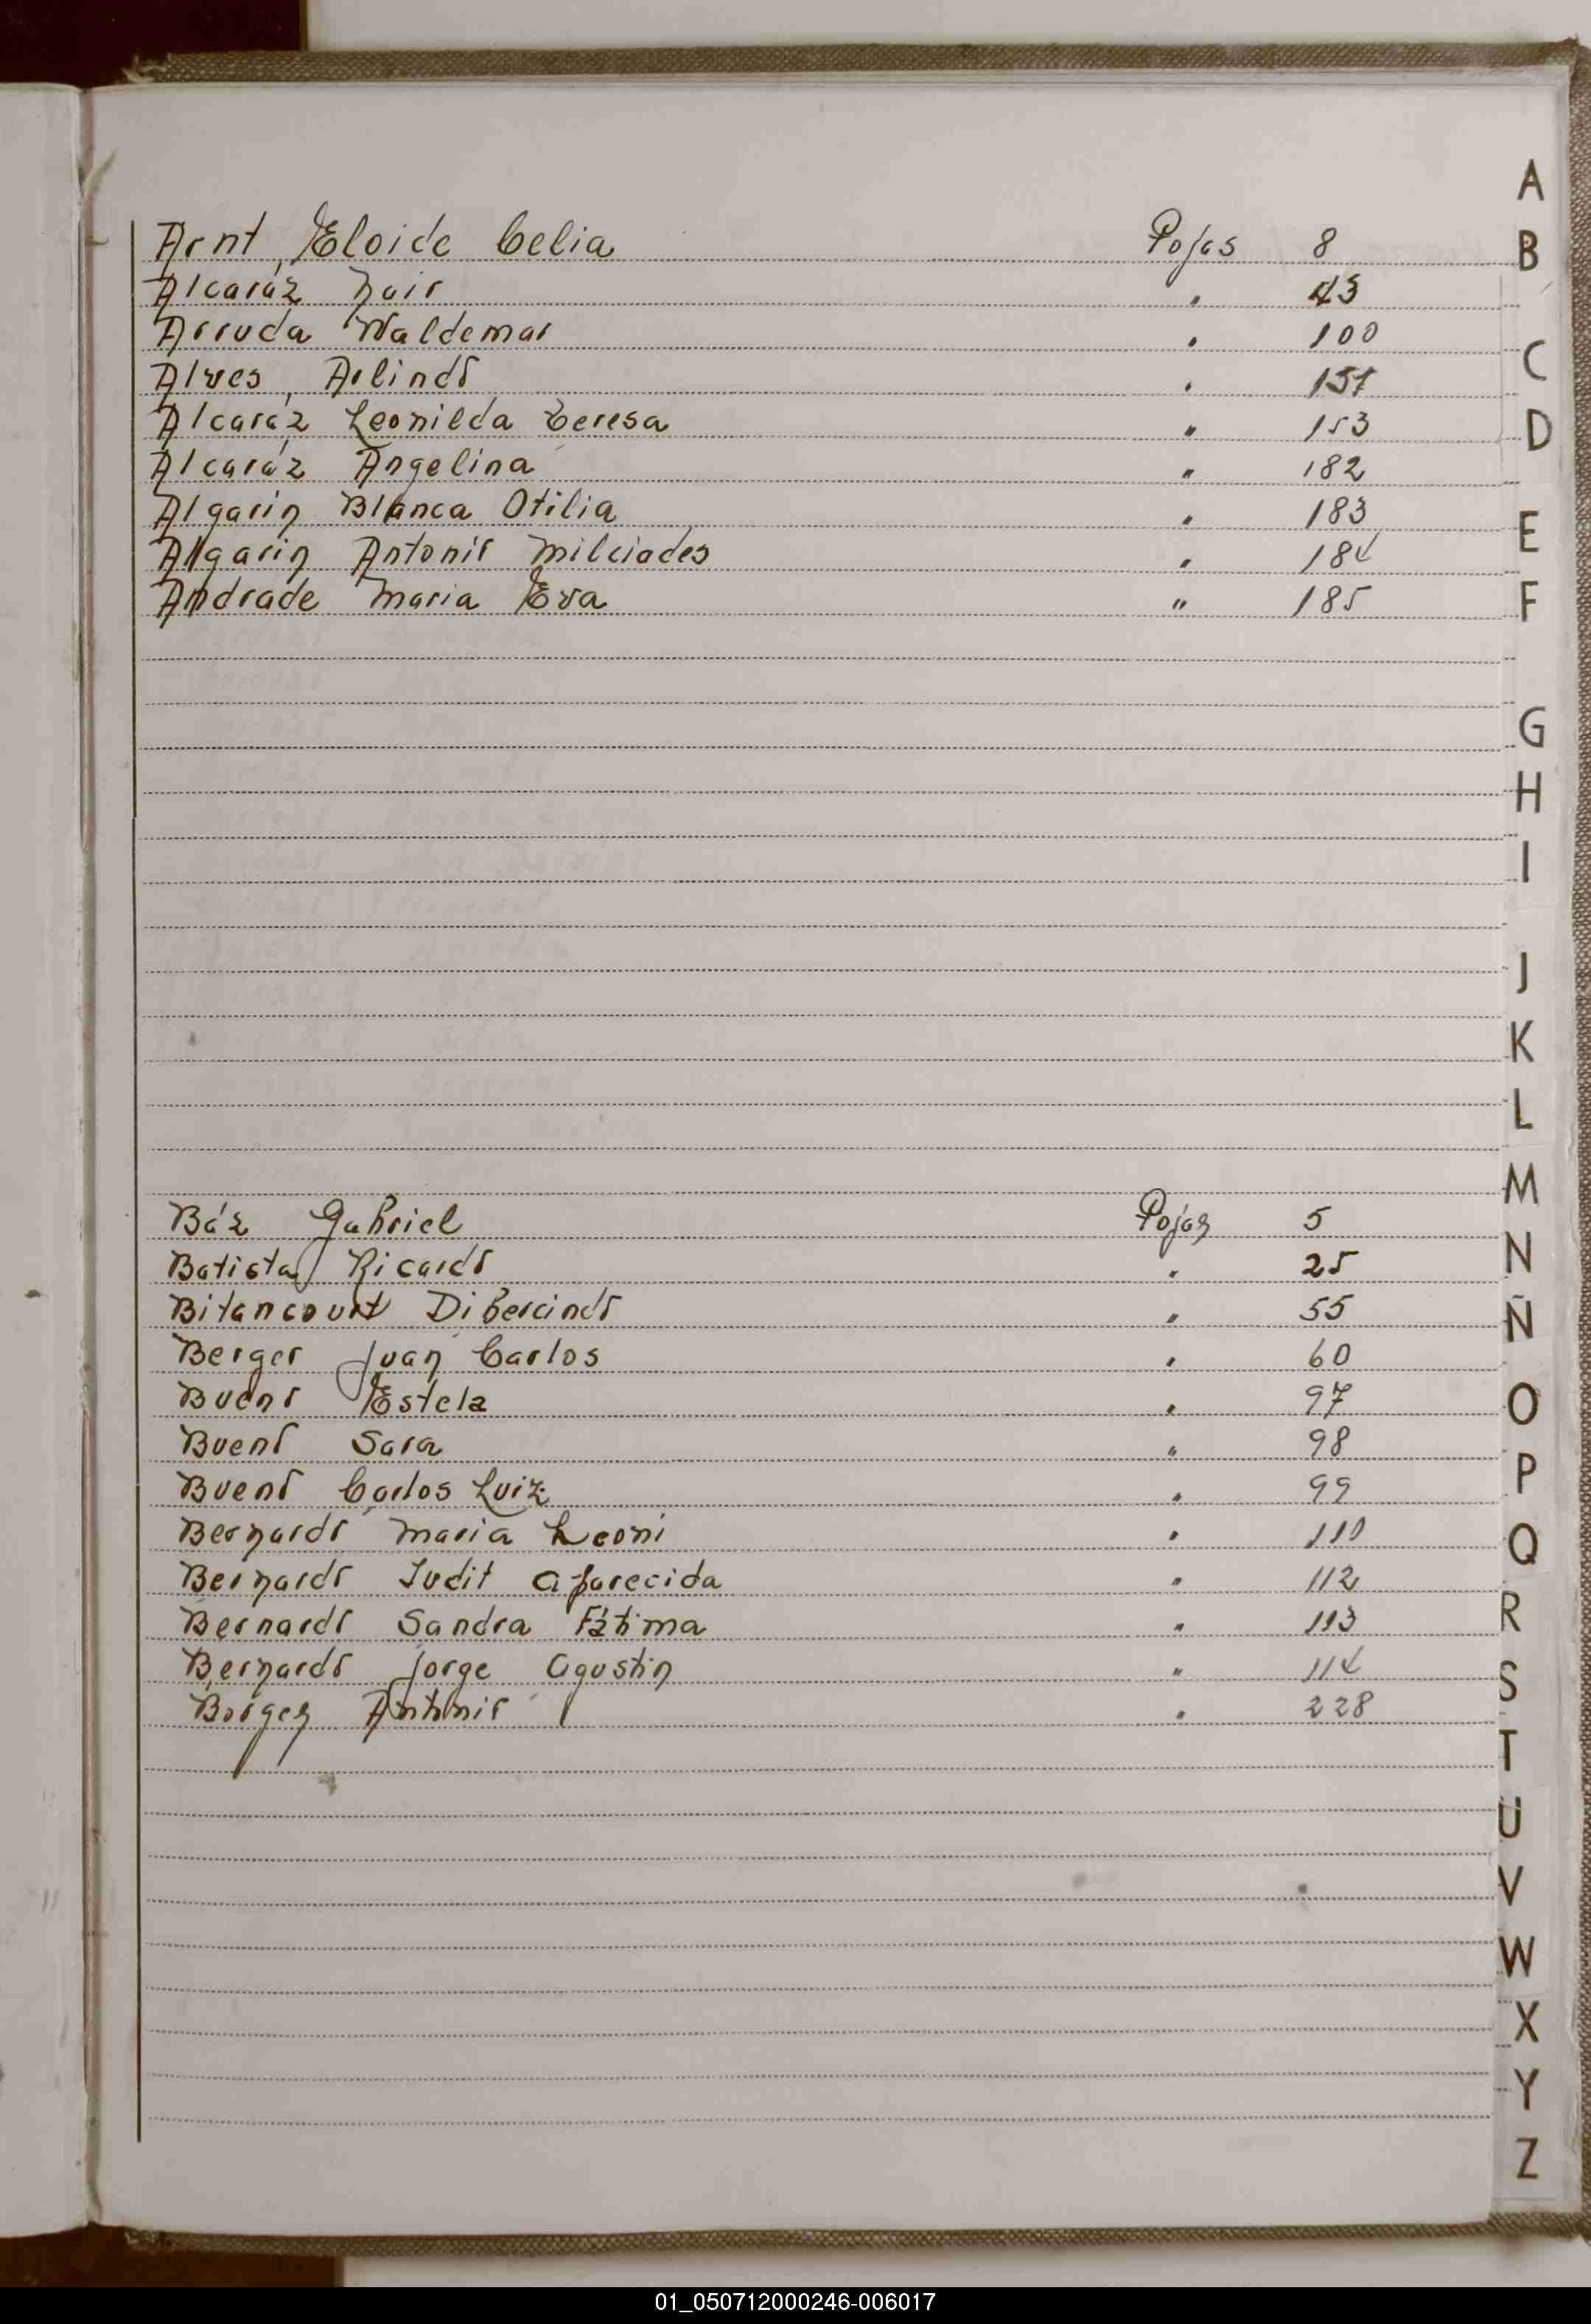 A
Arnt, Eloide Celia Fojas 8
B
Alcaráz Nair " 43
Arruda Waldemar " 100
C
Alves, Arlindo " 151
Alcaráz Leonilda Teresa " 153
D
Alcaráz Angelina " 182
Algarin Blanca Otilia " 183
E
Algarin Antonio Milciades " 184
Andrade Maria Eva " 185
F
G
H
I
J
K
L
M
Báz Gabriel Fojas 5
N
Batista Ricardo " 25
Bitancourt Dibercindo " 55
Ñ
Berger Juan Carlos " 60
Bueno Estela " 97
O
Bueno Sara " 98
P
Bueno Carlos Luiz " 99
Bernardo Maria Leoni " 110
Q
Bernardo Judit Aparecida " 112
Bernardo Sandra Fátima " 113
R
Bernardo Jorge Agustin " 114
S
Borges Antonio " 228
T
U
V
W
X
Y
Z
01_050712000246-006017